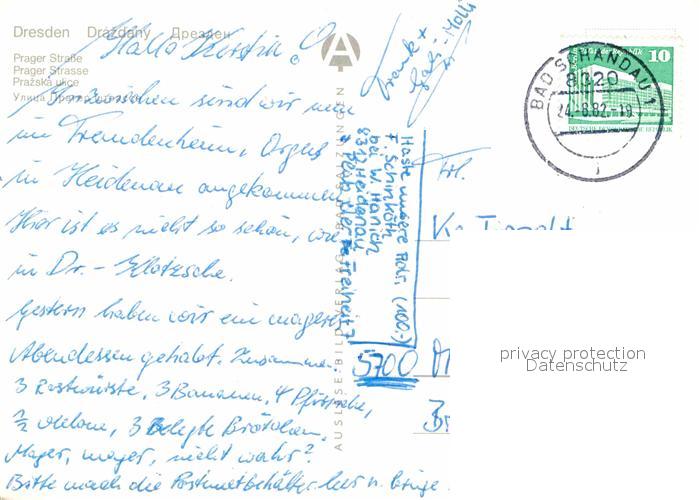 Dresden Drážďany Дрезден
Prager Straße
Prager Strasse
Pražská ulice
Улица
Hallo Kerstin!
Inzwischen sind wir nun
im Fremdenheim, Orgus
in Heidenau angekommen
Hier ist es nicht so schön, wie
in Dr. - Klotzsche.
Gestern haben wir ein mageres
Abendessen gehabt. Zusammen:
3 Rostwürste, 3 Bananen, 4 Pfirsiche,
1/2 Melone, 3 belegte Brötchen.
Mager, mager, nicht wahr?
Bitte mach die Postmietbehälter leer u. bringe
Frank +
Gabi-Molli
Haste unsere Adr. (100.-)
F. Schinköth
bei W. Hanich
8312 Heidenau
Platz der Freiheit 7
AUSLESE-BILD-VERLAG BAD SALZUNGEN
Frl.
5700
BAD SCHANDAU 1
8320
24.-8.82.-19
10
DEUTSCHE DEMOKRATISCHE REPUBLIK
privacy protection
Datenschutz